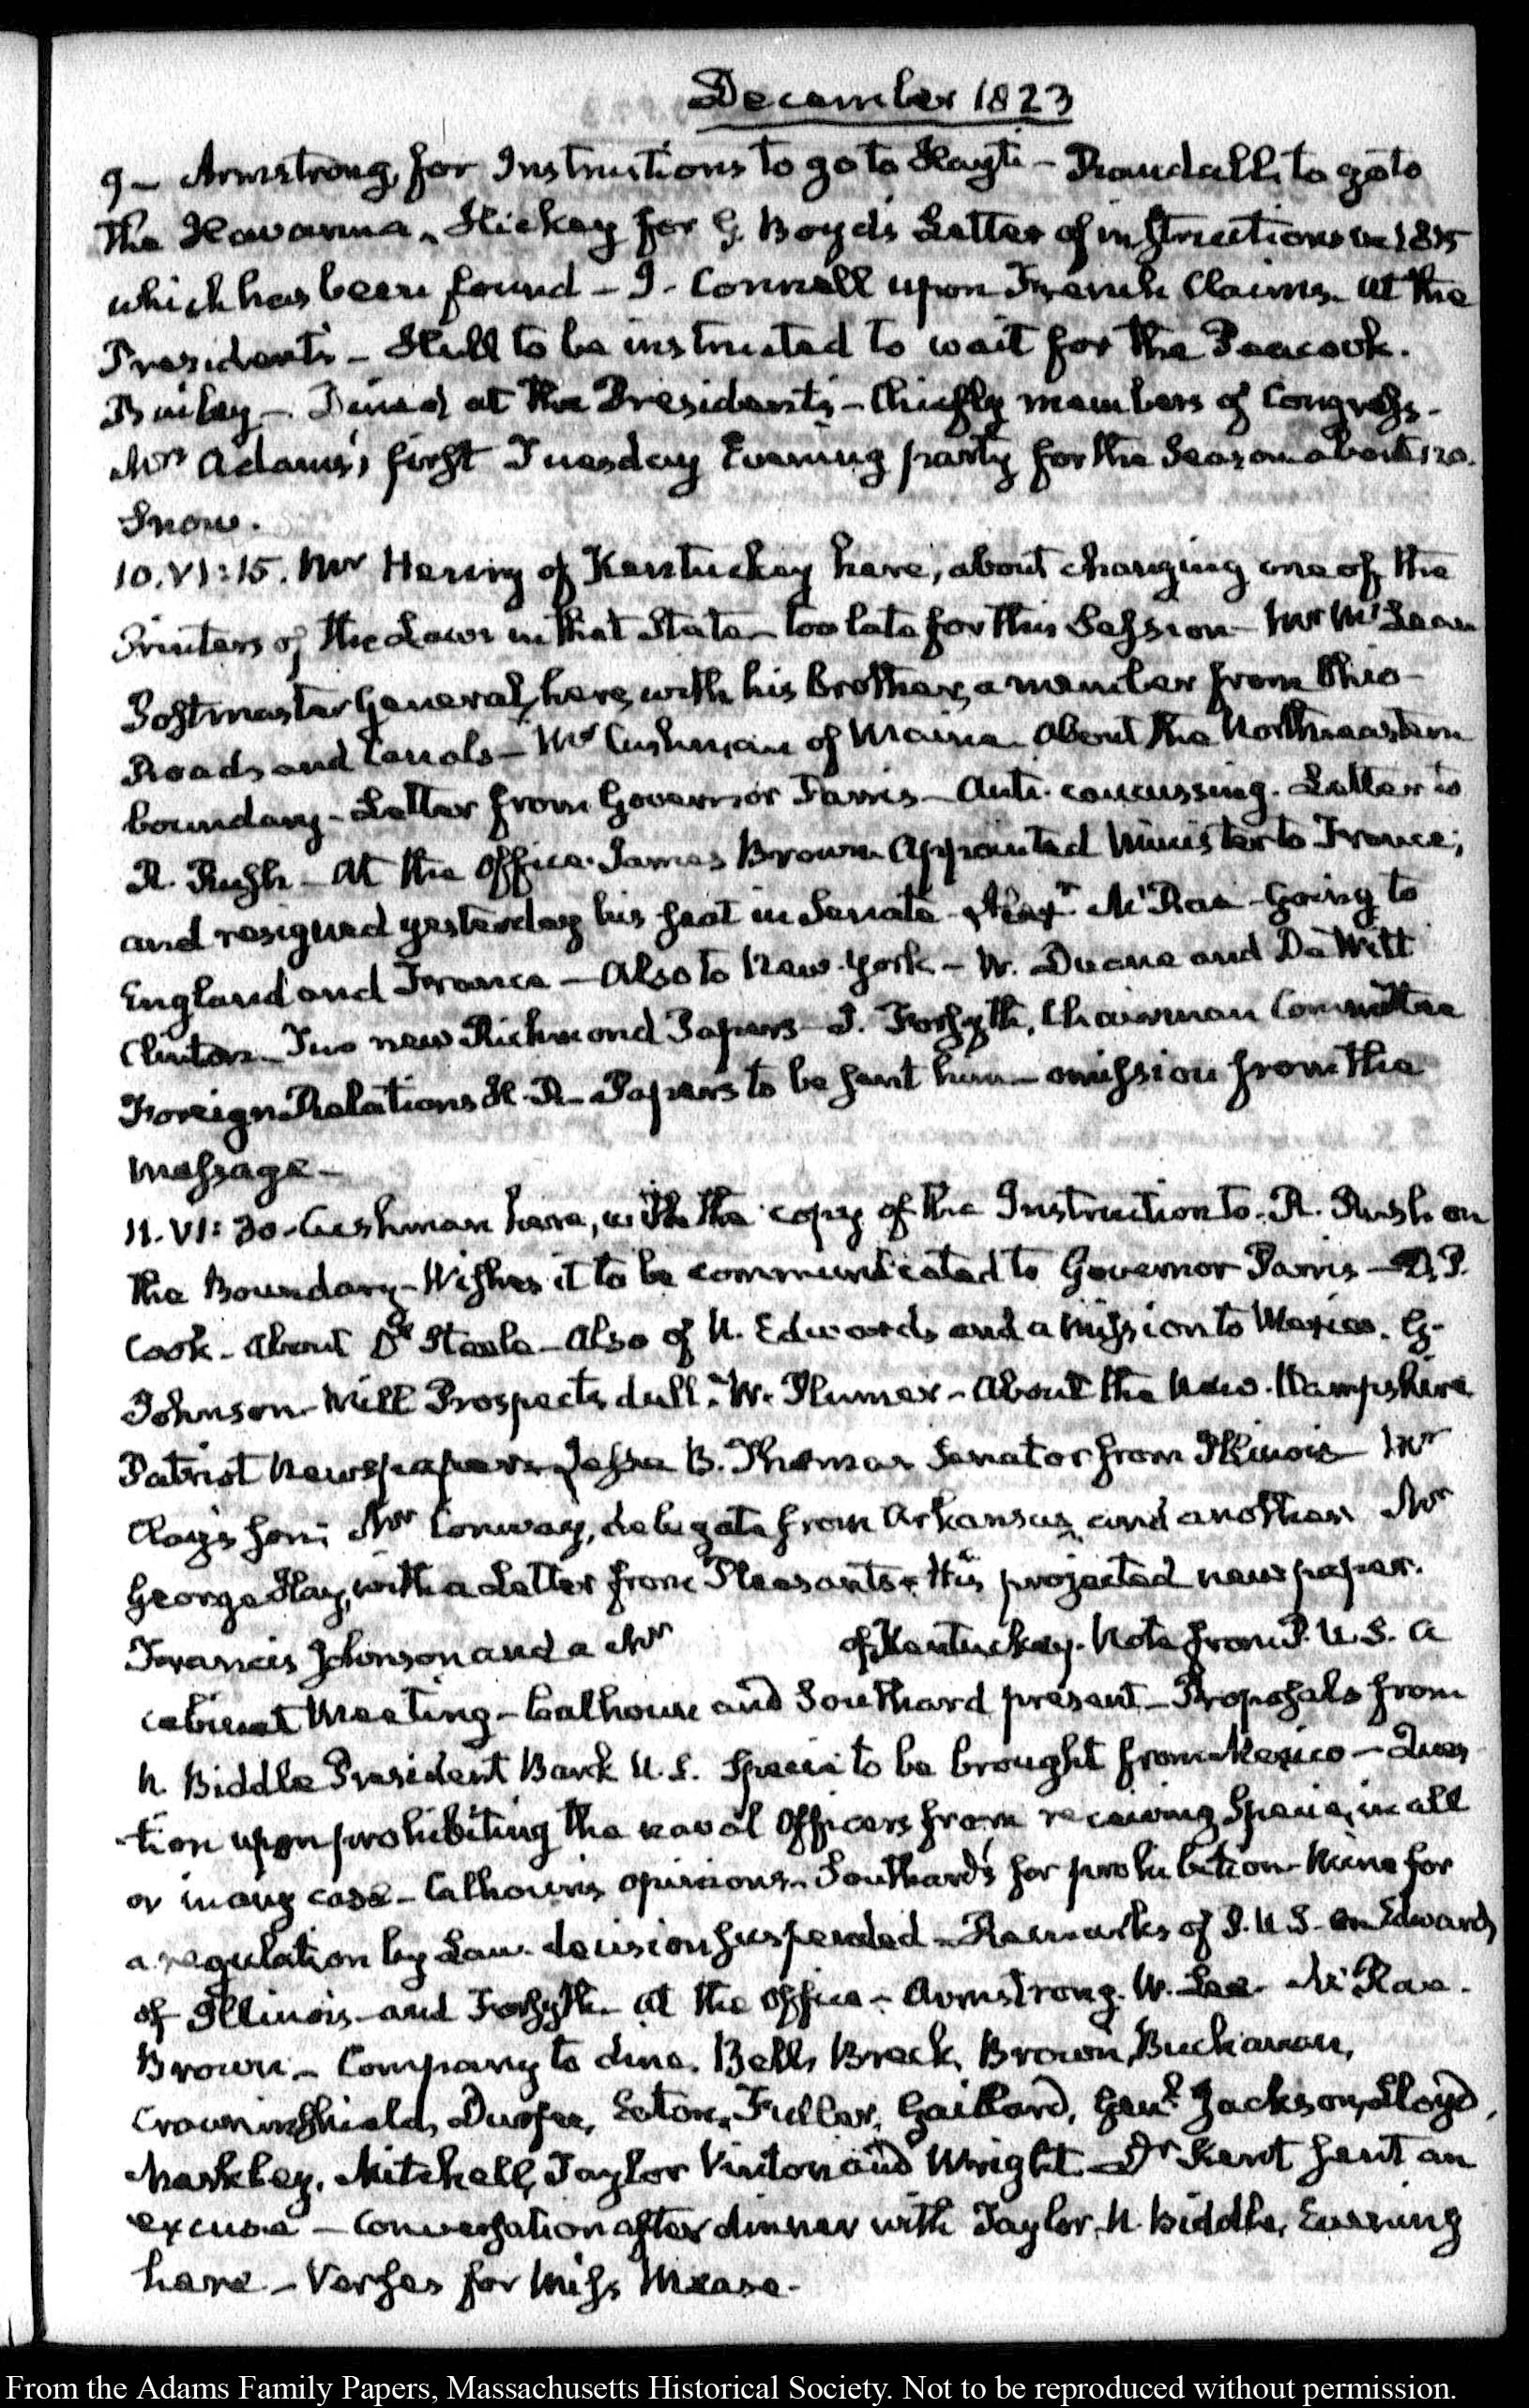 December 1823
9 – Armstrong, for Instructions to go to Hayti – Randall, to go to
the Havanna. Hickey for G. Boyd's Letter of instructions in 1815
which has been found – J. Connell upon French Claims. at the
Presidents – Hull to be instructed to wait for the Peacock.
Bailey – Dined at the Presidents – Chiefly members of Congress –
Mrs Adams's first Tuesday Evening party for the Season about 120.
Snow.
10. VI:15. Mr Henry of Kentuckey here, about changing one of the
Printers of the Laws in that State – too late for this Session – Mr McLean
Postmaster General, here, with his Brother, a member from Ohio –
Roads and Canals – Mr Cushman of Maine. About the Northeastern
boundary – Letter from Governor Parris – Anti-caucussing. Letter to
R. Rush – At the Office. James Brown appointed Minister to France;
and resigned yesterday his seat in Senate – Alexr McRae – Going to
England and France – Also to New-York – W. Duane and De Witt
Clinton. Two new Richmond Papers – J. Forsyth, Chairman Committee
Foreign Relations H. R. – Papers to be sent him – omission from the
message –
11. VI:30. Cushman here, with the copy of the Instruction to R. Rush on
the Boundary – Wishes it to be communicated to Governor Parris – D. P.
Cook – about Dr Steele – Also of N. Edwards and a Mission to Mexico. G.
Johnson – Mill Prospects dull. W. Plumer – About the New-Hampshire
Patriot Newspaper. Jesse B. Thomas Senator from Illinois – Mr
Clay's son; Mr Conway, delegate from Arkansas, and another Mr
George Hay, with a Letter from Pleasants. His projected newspaper.
Francis Johnson and a Mr of Kentuckey. Note from P. U. S. a
cabinet Meeting – Calhoun and Southard present – Proposals from
N. Biddle President Bank U. S. Specie to be brought from Mexico – Ques
-tion upon prohibiting the naval Officers from receiving Specie, in all
or in any case – Calhoun's opinions – Southard's for prohibition – Mine for
a regulation by Law. decision suspended – Remarks of P. U. S. on Edwards
of Illinois – and Forsyth – at the Office – Armstrong. W. Lee. McRae.
Brown – Company to dine. Bell, Breck, Brown, Buchanan,
Crowninshield, Durfee, Eaton, Fuller, Gaillard, Genl Jackson, Lloyd,
Markley, Mitchell, Taylor Vinton and Wright – Dr Kent sent an
excuse – Conversation after dinner with Taylor, N. Biddle, Evening
here – Verses for Miss Mease –
From the Adams Family Papers, Massachusetts Historical Society. Not to be reproduced without permission.